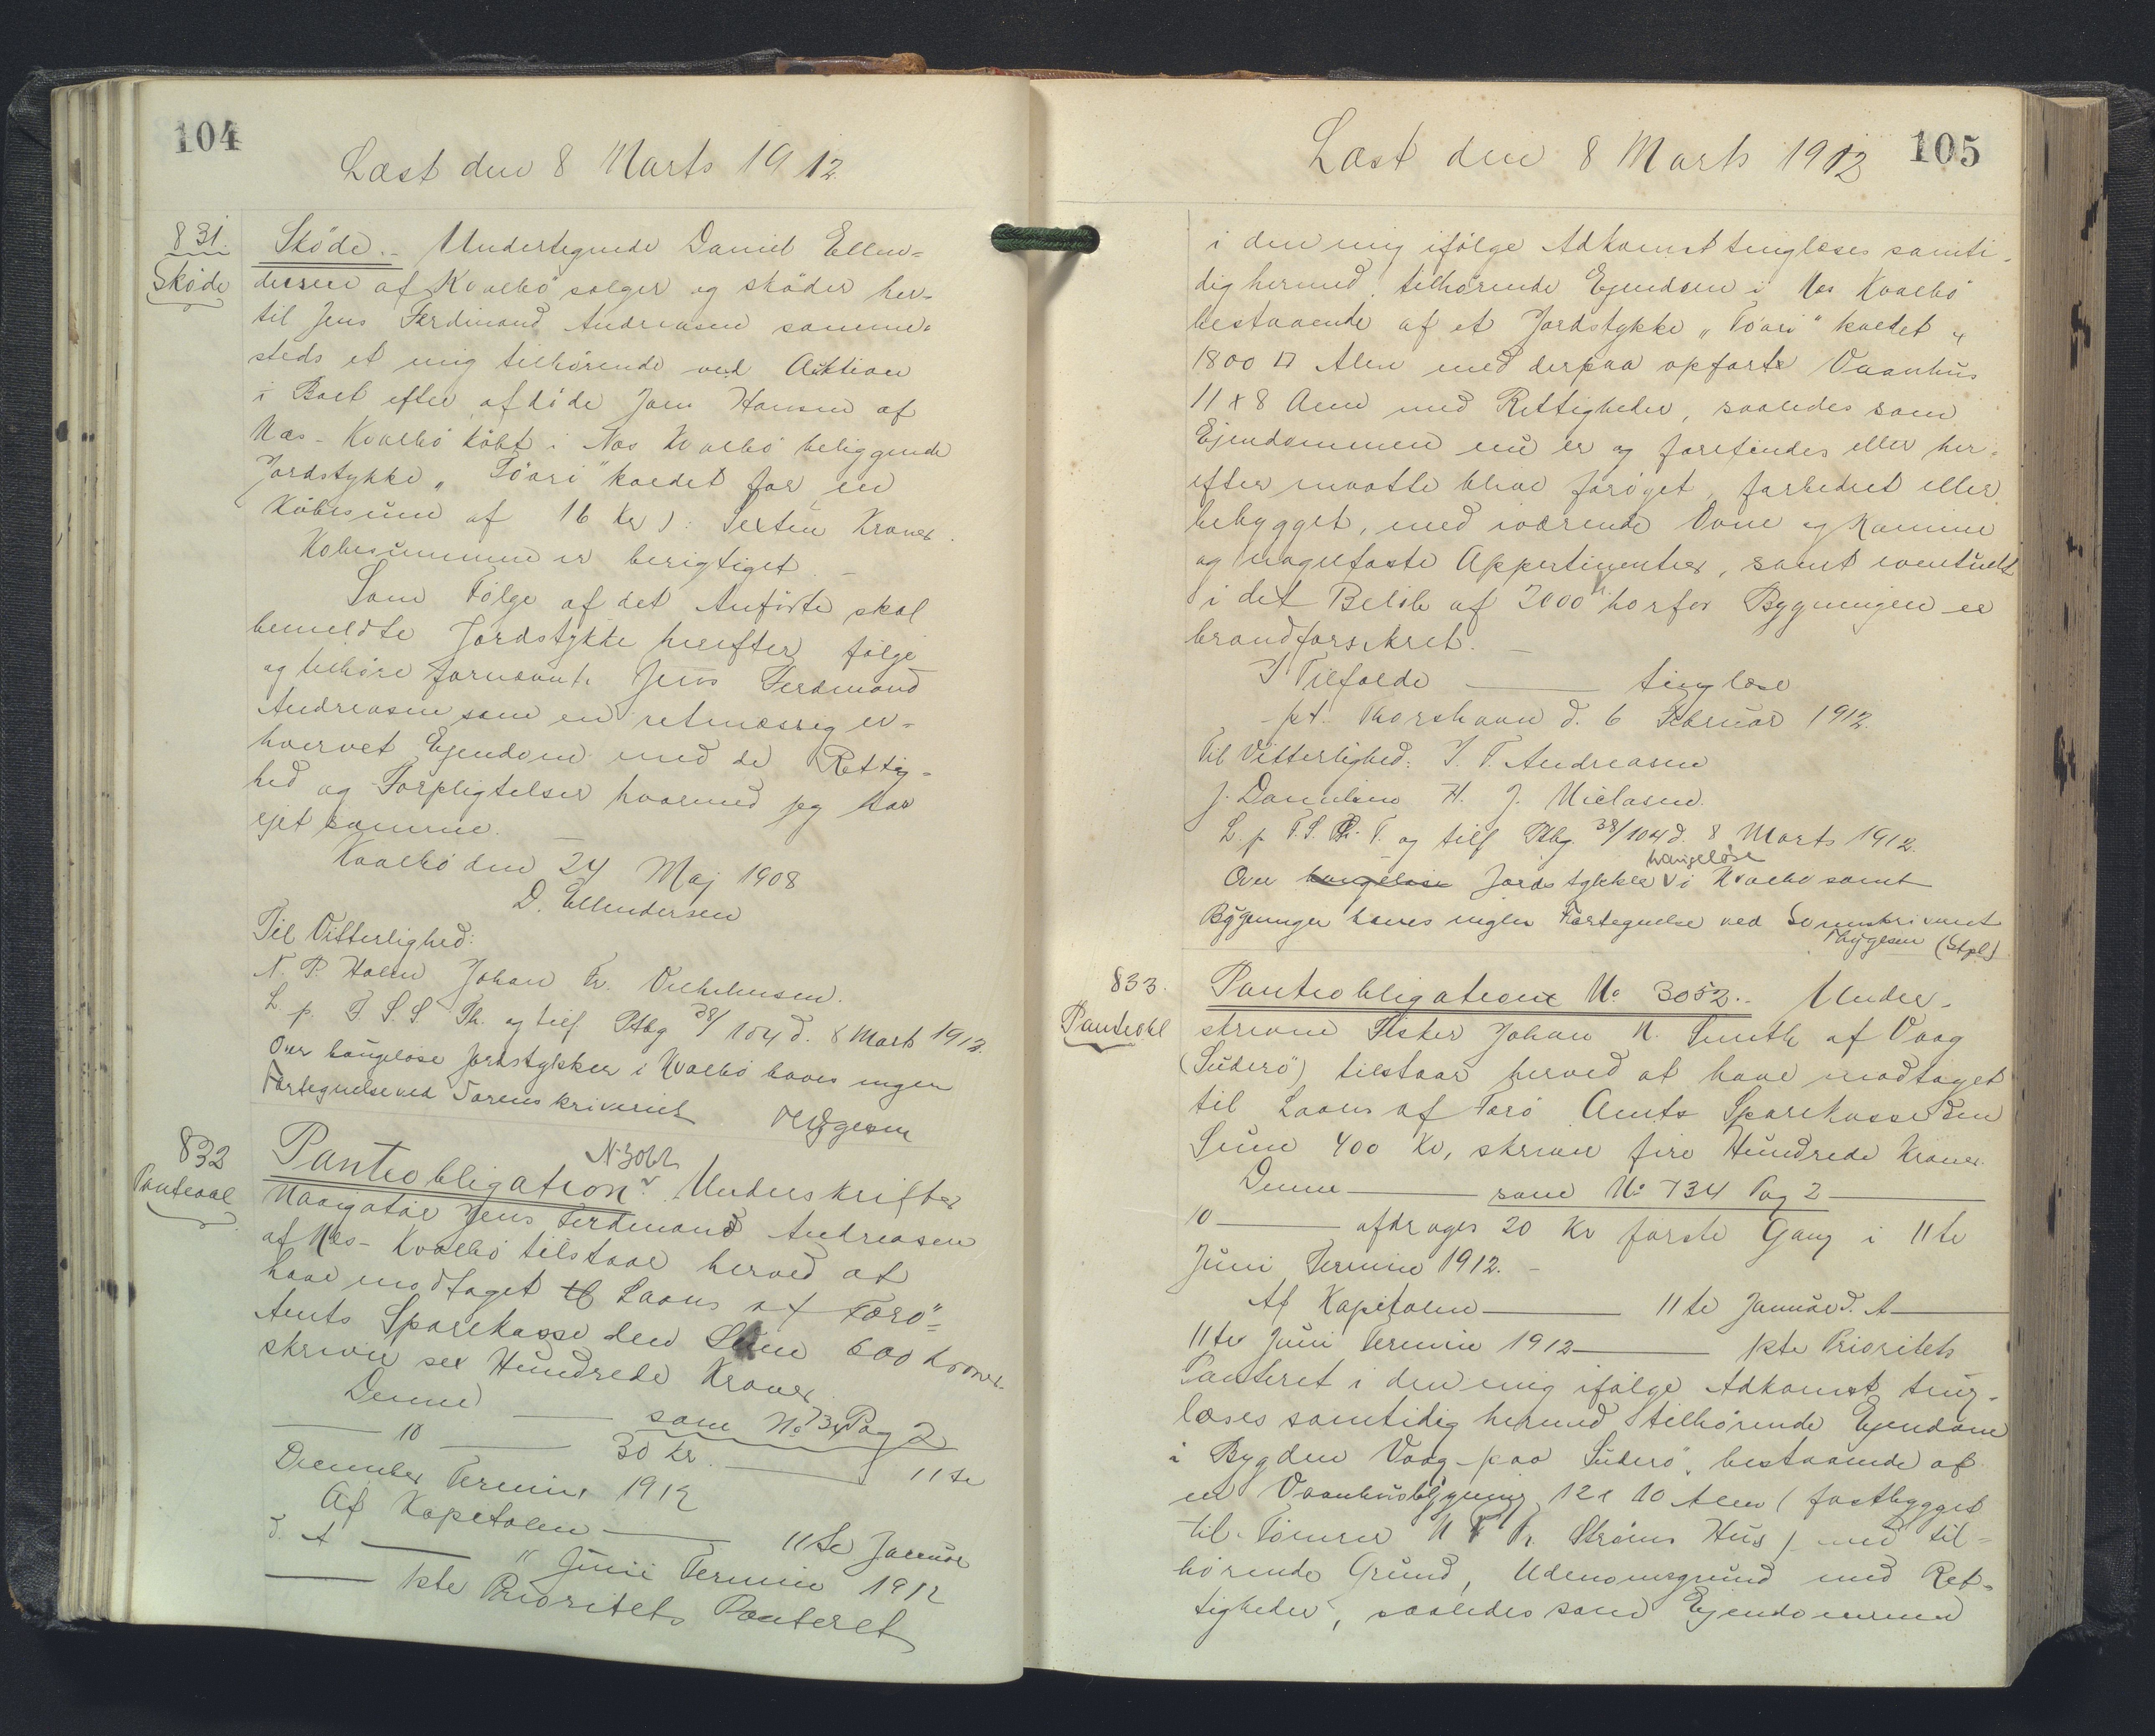 104
Læst den 8 Marts 1912.
831.
Sköde
Sköde.- Undertegnede Daniel Ellen-
dersen af Kvalbö sælger og sköder her-
til Jens Ferdinand Andreasen samme-
steds et mig tilhörende ved Auktion
i Boet efter afdöde Joen Hansen af
Næs-Kvalbö köbt i Næs Kvalbö beliggende
Jordstykke „Töari" kaldet for en
Köbesum af 16 Kr ): Sexten Kroner.
Kobesummen er berigtiget. -
Som Fölge af det Anförte skal
bemeldte Jordstykke herefter fölge
og tilhöre fornævnte Jens Ferdinand
Andreasen som en retmæssig er-
hvervet Ejendom med de Rettig-
hed og Forpligtelser hvormed jeg har
ejet samme. -
Kvalbö den 24 Maj 1908
D. Ellendersen
Til Vitterlighed:
N. P. Holm Johan Fr.
L. p. F. S. S. Th. og tilf Ptbg 38/104 d. 8 Marts 1912.
Over haugelöse Jordstykker i Kvalbö haves ingen
Fortegnelse ved Sorenskriveriet Thygesen
832
Panteobl
Panteobligation N. 3062 Underskrifter
Navigatör Jens Ferdinand Andreasen
af Næs-Kvalbö tilstaar herved at
have modtaget til Laans af Færö
Amts Sparekasse den Sum 600 Kroner
skriver sex Hundrede Kroner.
Denne ——— som No 734 Pag 2
——— 10 ——— 30 Kr. ——— 11te
December Termin 1912
Af Kapitalen ——— 11te Januar
d. A ——— 11 Juni Termin 1912
——— 1ste Prioritets Panteret
105
Læst den 8 Marts 1912
i den mig ifölge Adkomst tinglæses samti-
dig hermed, tilhörende Ejendom i Næs Kvalbö
bestaaende af et Jordstykke „Töari" kaldet
1800 □ Alen med derpaa opförte Vaanhus
11 x 8 Alen med Rettigheder, saaledes som
Ejendommen nu er og forefindes eller her-
efter maatte blive foröget, forbedret eller
bebygget, med iværende Ovne og Kamine
og nagelfaste Appertinentier, samt eventuelt
i det Belöb af 2000 horfor Bygningen er
brandforsikret. -
I Tilfælde ——— tinglæse
- pt. Thorshavn d. 6 Februar 1912.
Til Vitterlighed: J. F. Andreasen
J. Danielsen H. J. Nielasen.
L. p F. S. Th. T. og tilf Ptbg. 38/104 d. 8 Marts 1912.
haugelöse
Over haugelöse Jordstykker i Kvalbö samt
Bygninger haves ingen Fortegnelse ved Sorenskriveriet
Thygesen (Stpl)
833.
Panteobl
Panteobligation No 3052.- Under-
skrevne Fisker Johan N. Smith af Vaag
(Suderö) tilstaar herved at have modtaget
til Laans af Færö Amts Sparekasse den
Sum 400 Kr, skriver fire Hundrede Kroner.
Denne ——— som No 734 Pag 2 ———
10 ——— afdrages 20 Kr förste Gang i 11te
Juni Termin 1912. -
Af Kapitalen ——— 11te Januar d. A ———
11te Juni Termin 1912 ——— 1ste Prioritets
Panteret i den mig ifölge Adkomst ting-
læses samtidig hermed tilhörende Ejendom
i Bygden Vaag paa Suderö, bestaaende af
en Vaanhusbygning 12 x 10 Alen (fastbygget
til Tömrer N F Pr. Ströms Hus) med til-
hörende Grund, Udenomsgrund med Ret-
tigheder, saaledes som Ejendommen